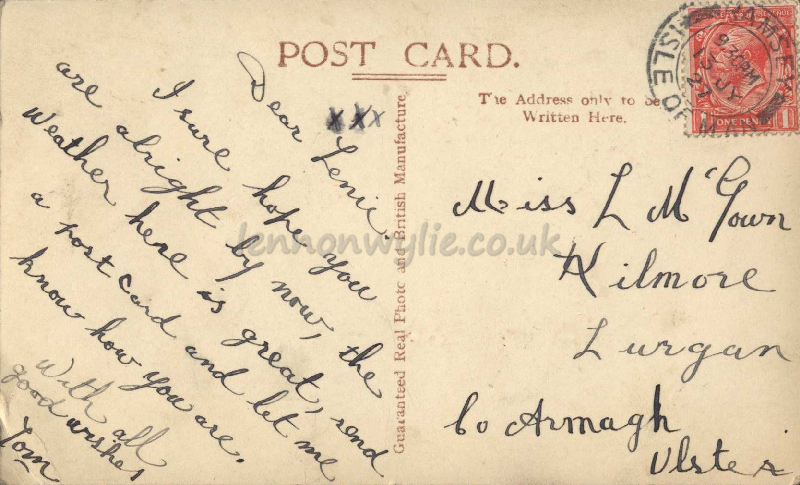 POST CARD.
Dear Lenie.
xxx
I sure hope you
are alright by now, the
weather here is great, send
a post card and let me
know how you are.
With all
good wishes
Tom
Guaranteed Real Photo and British Manufacture
The Address only to be
Written Here.
Miss L McGown
Kilmore
Lurgan
Co Armagh
Ulster
RAMSEY
9.30PM
13 JY
27
ISLE OF MAN
1 ONE PENNY 1
lennonwylie.co.uk